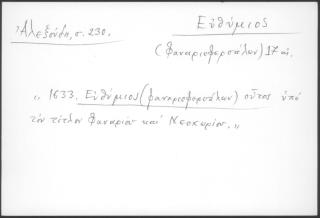 Ἀλεξούδη, σ. 230.
Εὐθύμιος
(Φαναριοφερσάλων) 17 αἰ.
„ 1633. Εὐθύμιος (φαναριοφερσάλων) οὗτος ὑπό
τόν τίτλον Φαναρίου καί Νεοχωρίου. „